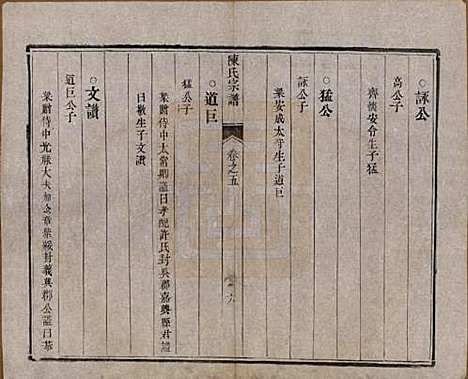 ○詠公
高公子
齊懷安令生子猛
○猛公
詠公子
梁安成太守生子道巨
陳氏宗譜
卷之五
六
○道巨
猛公子
梁贈侍中太常卿諡曰孝配許氏封吳郡嘉興縣君諡
曰敬生子文讃
○文讃
道巨公子
梁贈侍中光祿大夫加金章紫綬封義興郡公諡曰恭